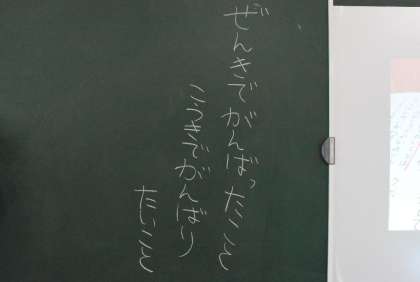 ぜんきでがんばったこと
こうきでがんばり
たいこと